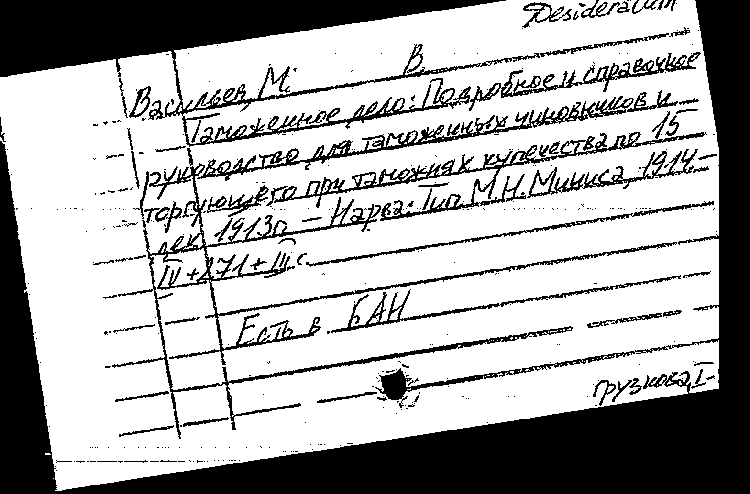 Desideratum
В
Васильев, М.
Таможенное дело: Подробное и справочное
руководство для таможенных чиновников и
торгующего при таможнях купечества по 15
дек. 1913г. – Нарва: Тип М.Н. Миниса, 1914.–
IV+271+III с.
Есть в БАН
Грузкова, I-